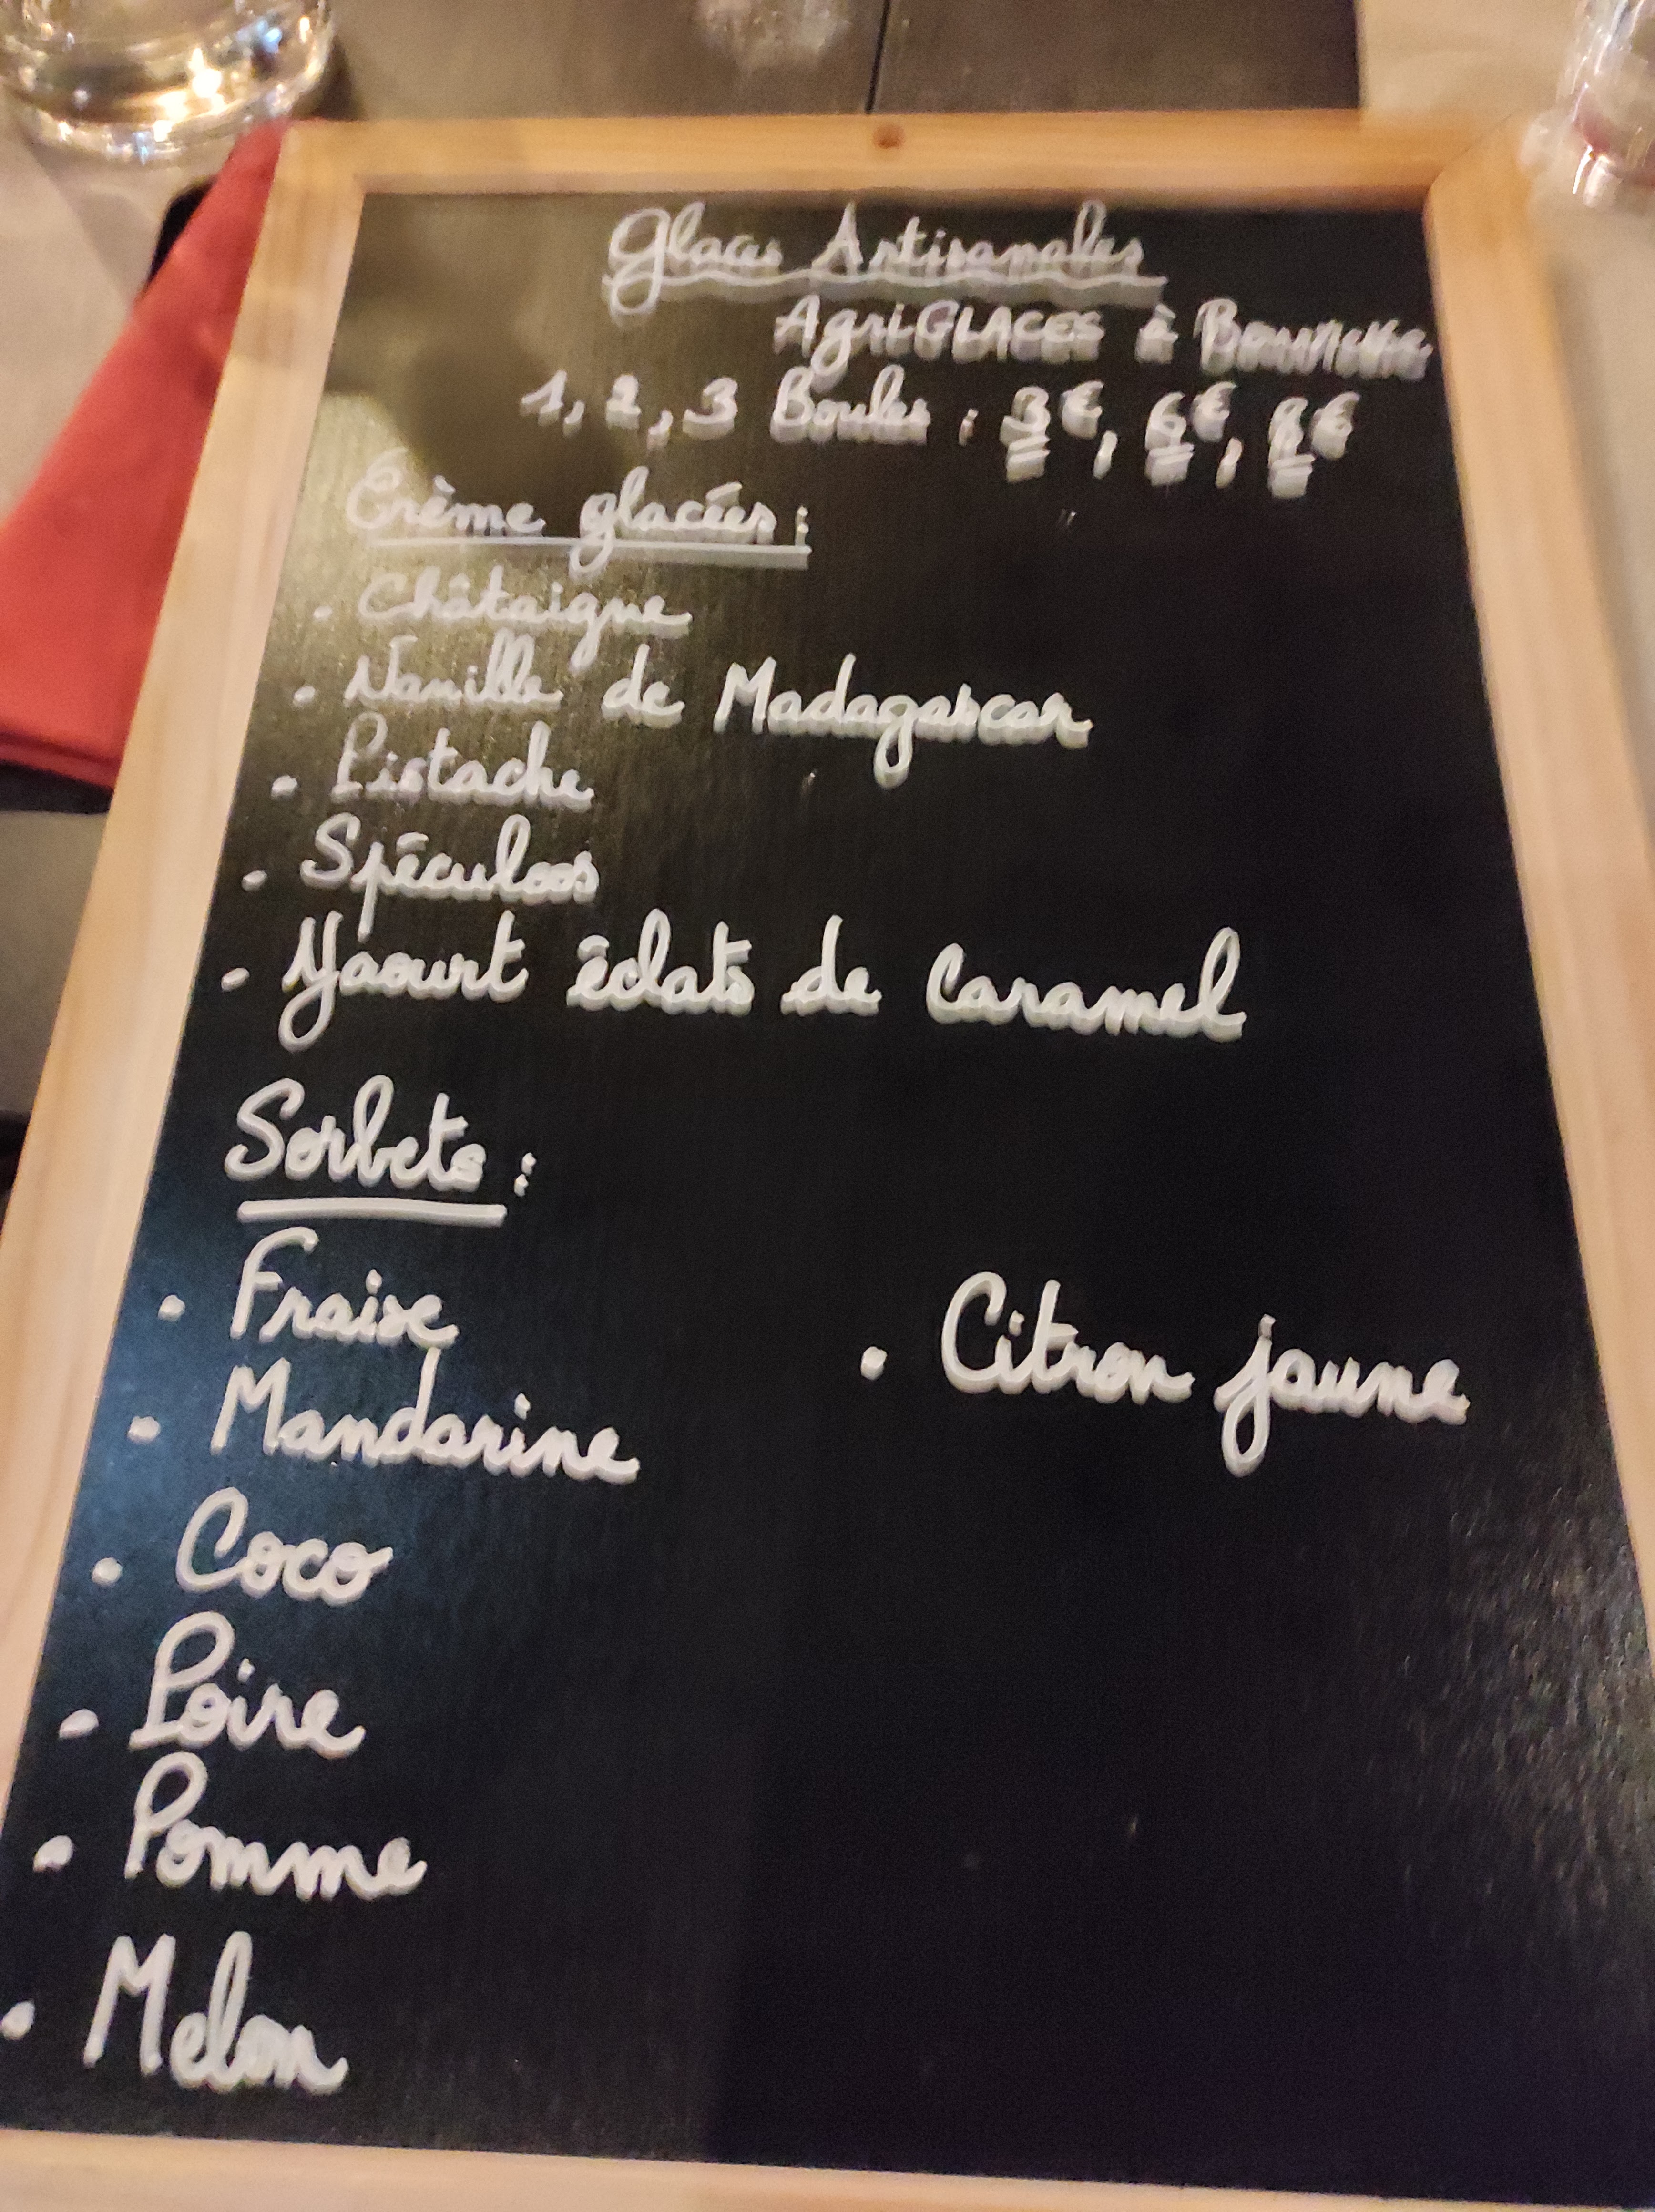 Glaces Artisanales
AgriGLACES à
1, 2, 3 Boules : 3€, 6€, 8€
Crème glacées :
. Châtaigne
. Vanille de Madagascar
. Pistache
. Spéculoos
. Yaourt éclats de Caramel
Sorbets :
. Fraise
. Mandarine
. Coco
. Poire
. Pomme
. Melon
. Citron jaune